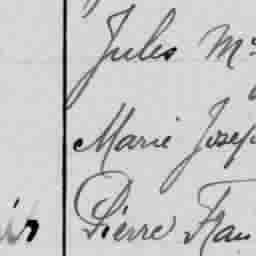 Jules M
Marie Josep
Pierre Fran